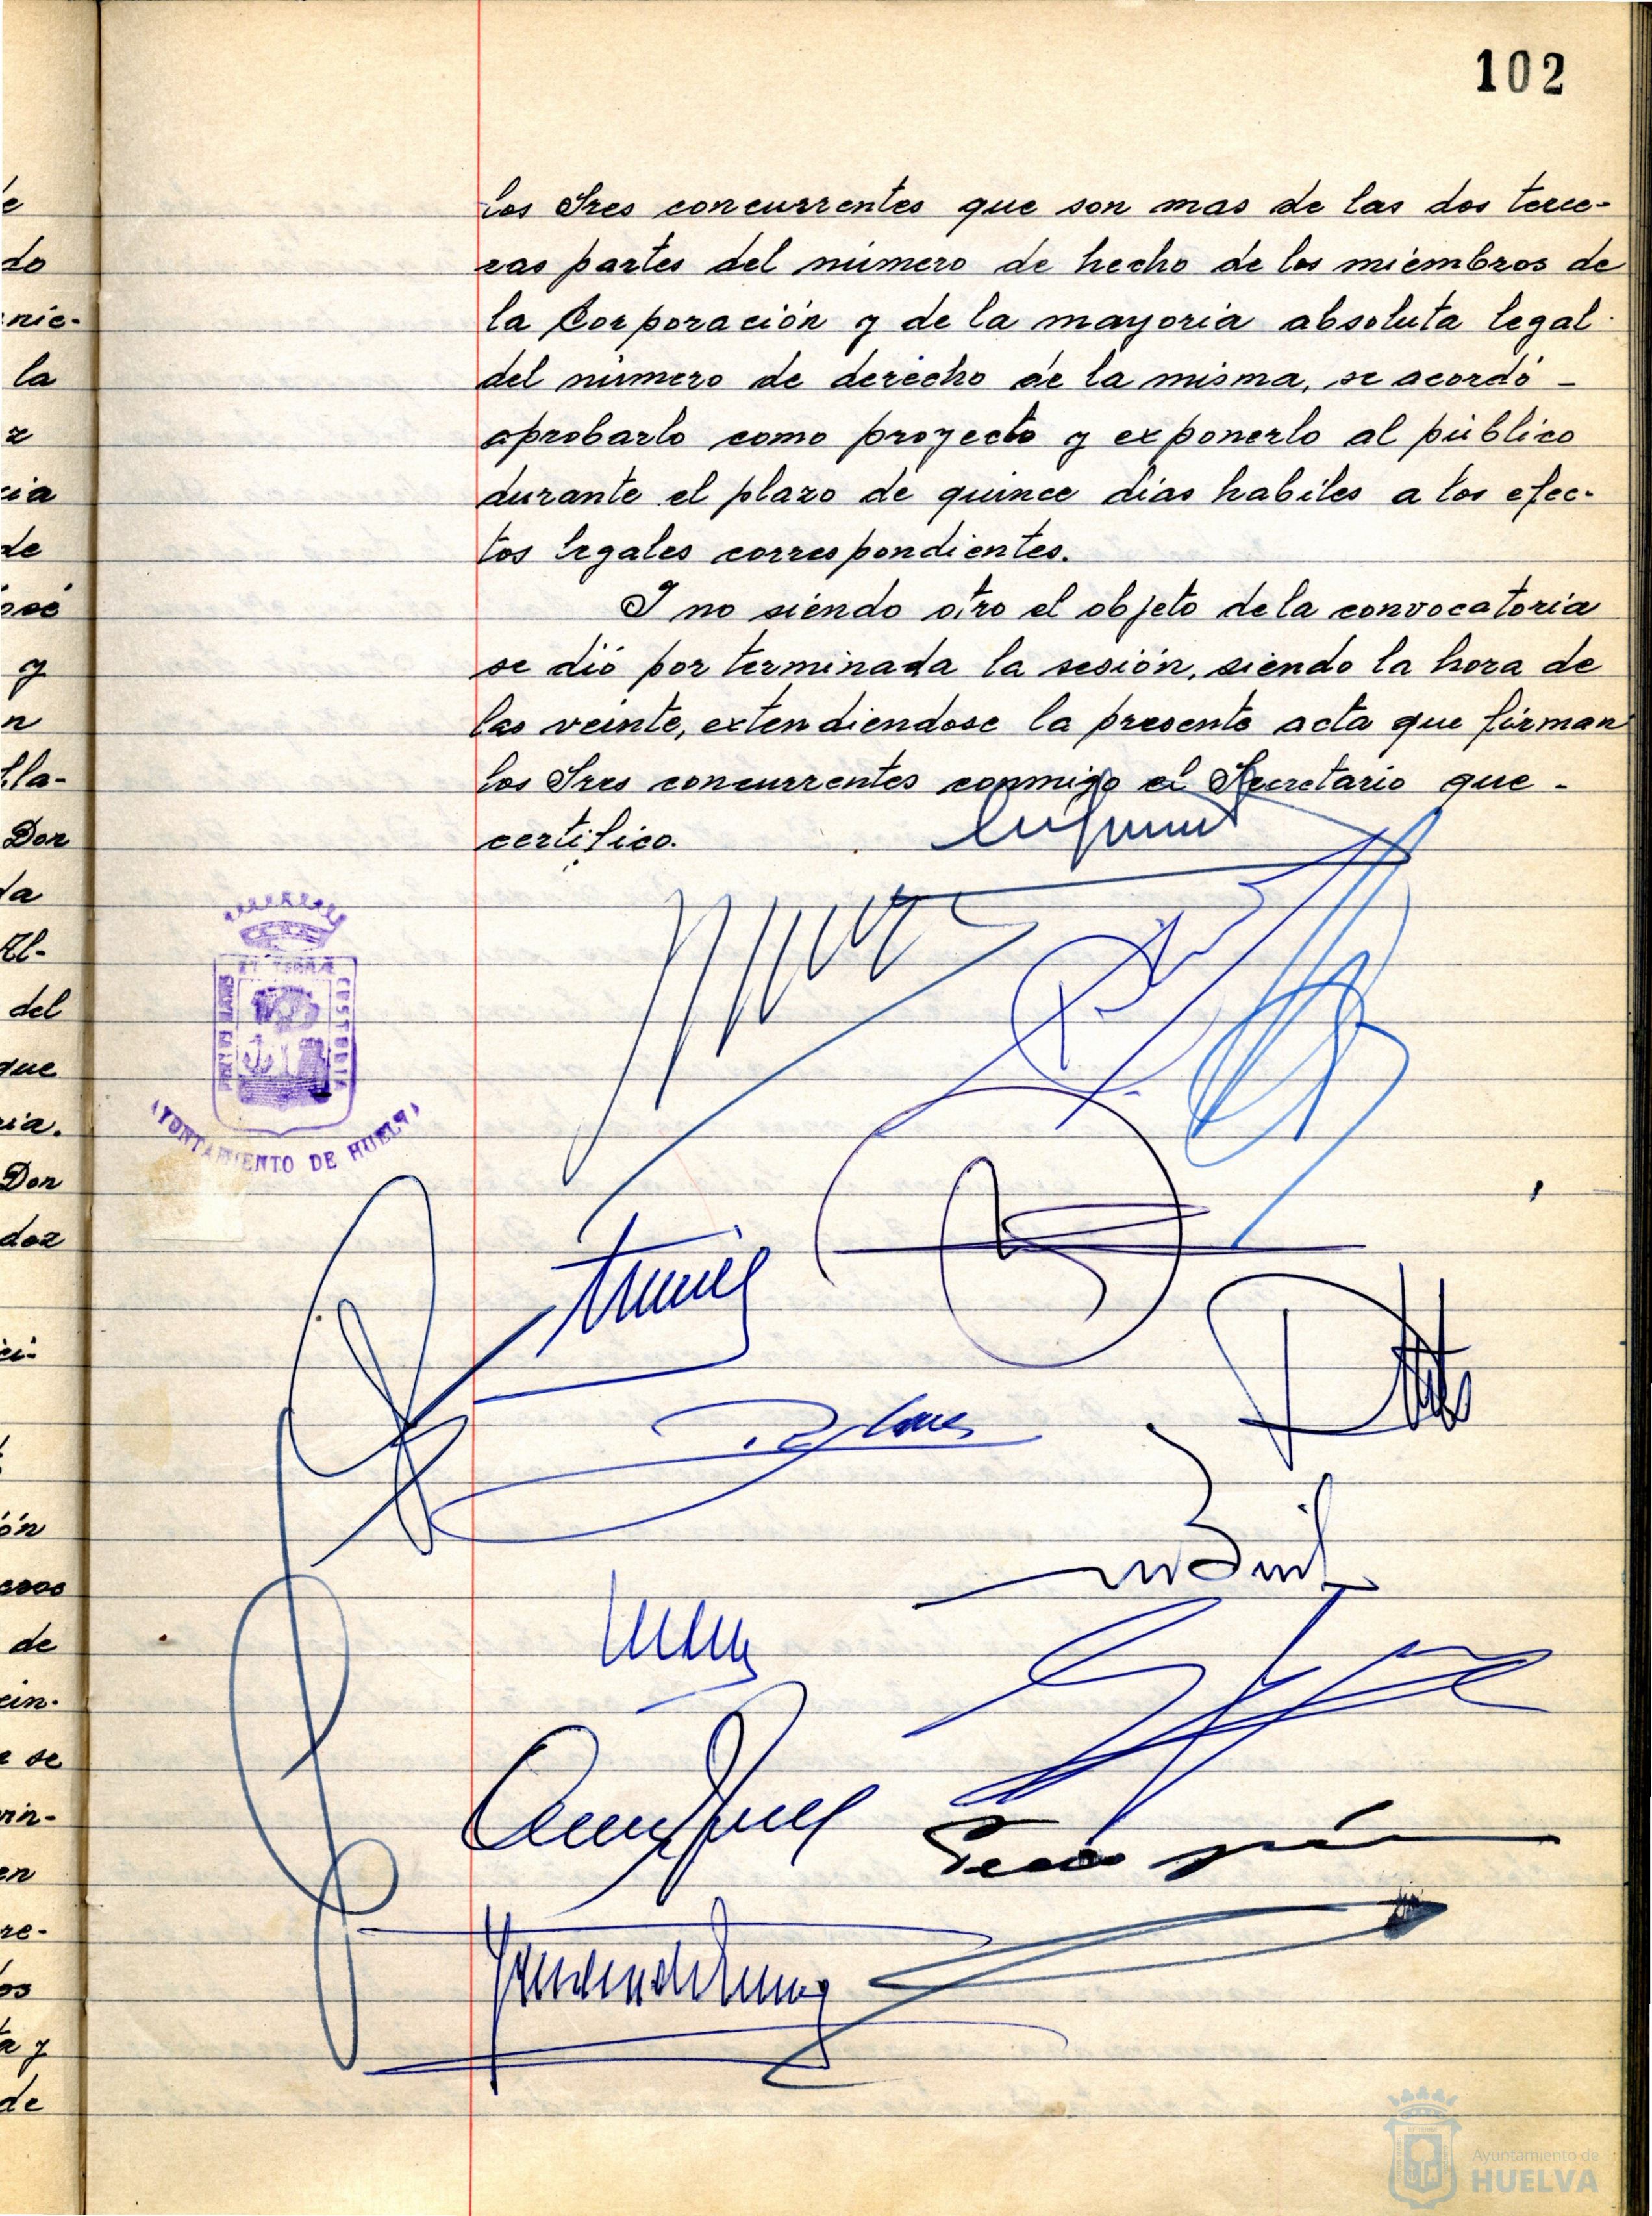 102
los Sres concurrentes que son mas de las dos terce-
ras partes del número de hecho de los miembros de
la Corporación y de la mayoria absoluta legal
del número de derecho de la misma, se acordó -
aprobarlo como proyecto y exponerlo al público
durante el plazo de quince dias habiles a los efec-
tos legales correspondientes.
Y no siendo otro el objeto de la convocatoria
se dió por terminada la sesión, siendo la hora de
las veinte, extendiendose la presente acta que firman
los Sres concurrentes conmigo el Secretario que -
certifico.
PORTUS MARIS
ET TERRAE
CUSTODIA
AYUNTAMIENTO DE HUELVA
do
nie-
la
de
y
n
lla-
Don
la
Al-
del
que
ia.
Don
dos
ón
de
se
en
re-
os
y
de
Ayuntamiento de
HUELVA